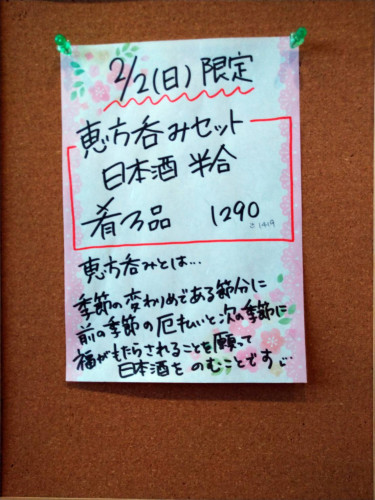 2/2(日)限定
恵方呑みセット
日本酒 半合
肴3品 1290
1419
恵方呑みとは…
季節の変わりめである節分に
前の季節の厄払いと次の季節に
福がもたらされることを願って
日本酒を のむことです